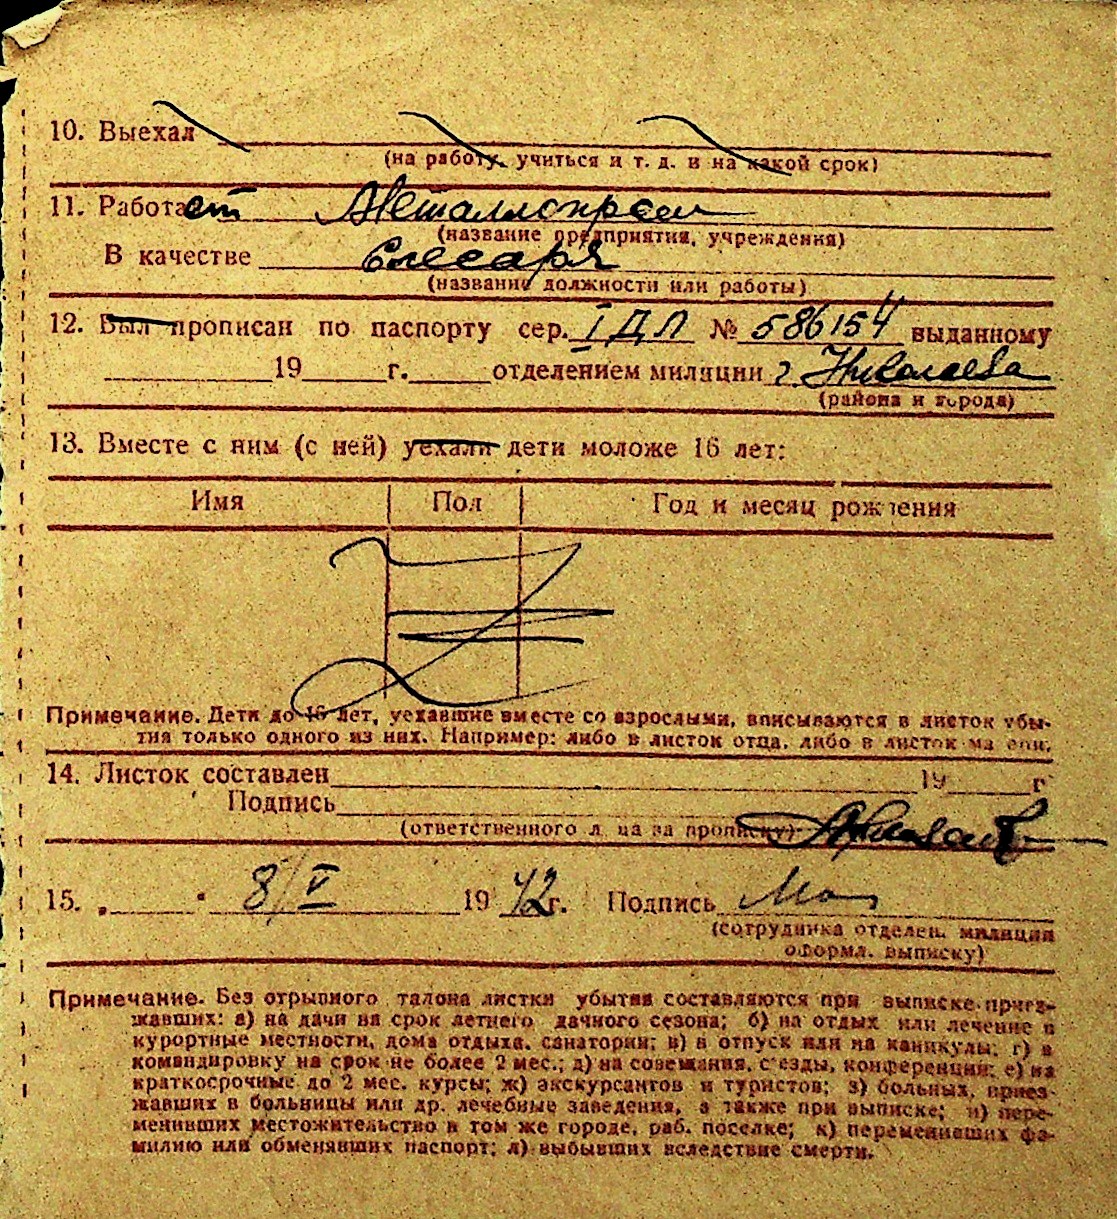 10. Выехал
(на работу, учиться и т. д. и на какой срок)
11. Работает Металлопром
(название предприятия, учреждения)
В качестве Слесаря
(название должности или работы)
12. Был прописан по паспорту сер. I ДЛ № 586154 выданному
19 г. отделением милиции г Николаева
(района и города)
13. Вместе с ним (с ней) уехали дети моложе 16 лет:
Имя Пол Год и месяц рождения
Примечание. Дети до 16 лет, уехавшие вместе со взрослыми, вписываются в листок убы-
тия только одного из них. Например: либо в листок отца, либо в листок матери.
14. Листок составлен 19 г
Подпись
(ответственного лица за прописку)
15. „ " 8/V 1942г. Подпись
(сотрудника отделен. милиции
оформл. выписку)
Примечание. Без отрывного талона листки убытия составляются при выписке приез-
жавших: а) на дачи на срок летнего дачного сезона; б) на отдых или лечение в
курортные местности, дома отдыха, санатории; в) в отпуск или на каникулы; г) в
командировку на срок не более 2 мес.; д) на совещания, съезды, конференции; е) на
краткосрочные до 2 мес. курсы; ж) экскурсантов и туристов; з) больных, приез-
жавших в больницы или др. лечебные заведения, а также при выписке; и) пере-
менивших местожительство в том же городе, раб. поселке; к) переменивших фа-
милию или обменявших паспорт; л) выбывших вследствие смерти.